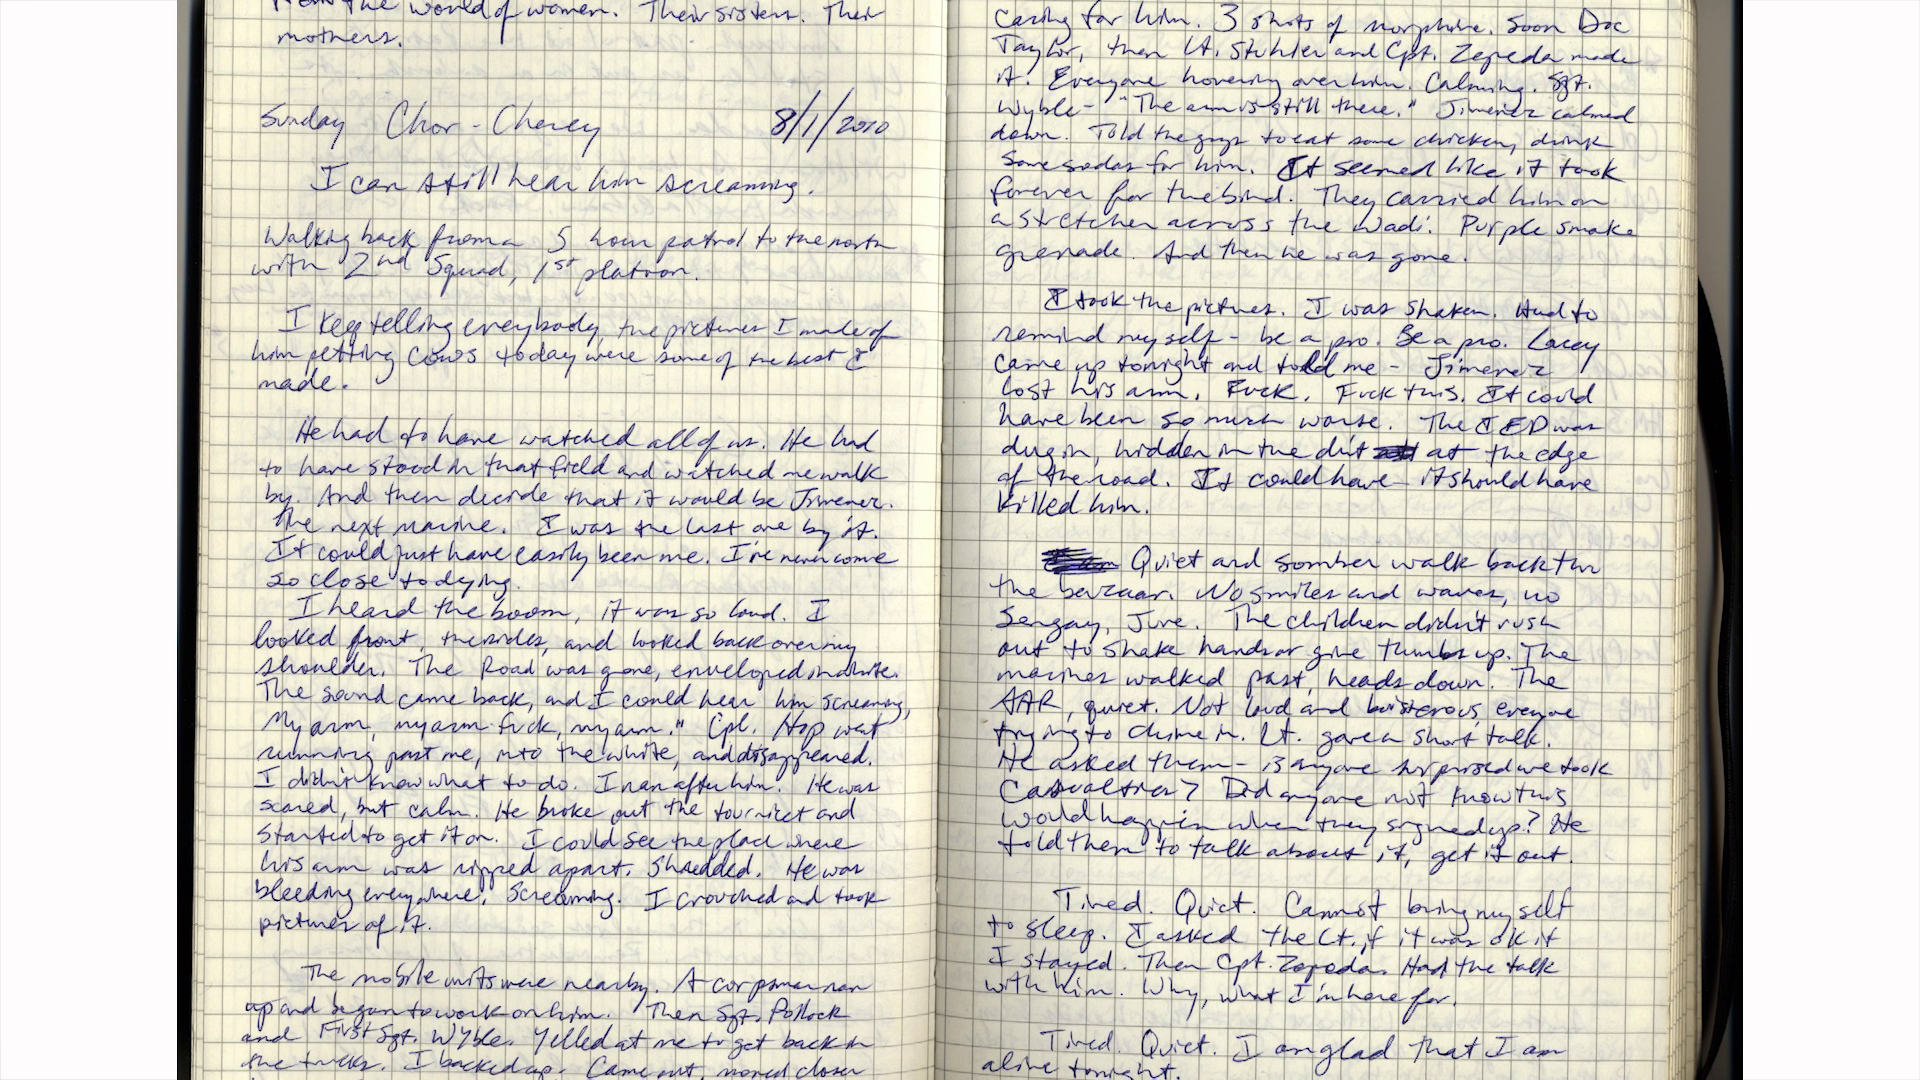 from the world of women. Their sisters. Their
mothers.
Sunday Chor-Cherey 8/1/2010
I can still hear him screaming.
Walking back from a 5 hour patrol to the north
with 2nd Squad, 1st platoon.
I keep telling everybody, the pictures I made of
him petting cows today were some of the best I
made.
He had to have watched all of us. He had
to have stood in that field and watched me walk
by. And then decide that it would be Jimenez.
The next marine. I was the last one by it.
It could just have easily been me. I've never come
so close to dying.
I heard the boom, it was so loud. I
looked front, the sides, and looked back over my
shoulder. The Road was gone, enveloped in white.
The sound came back, and I could hear him screaming,
My arm, my arm fuck, my arm." Cpl. Hop went
running past me, into the white, and disappeared.
I didn't know what to do. I ran after him. He was
scared, but calm. He broke out the tournicet and
started to get it on. I could see the place where
his arm was ripped apart. Shredded. He was
bleeding everywhere. Screaming. I crouched and took
pictures of it.
The mobile units were nearby. A corpsman ran
up and began to work on him. Then Sgt. Pollock
and First Sgt. Wyble. Yelled at me to get back in
the trucks. I backed up. Came out, moved closer
caring for him. 3 shots of morphine. Soon Doc
Taylor, then Lt. Stuhler and Cpt. Zepeda made
it. Everyone hovering over him. Calming. Sgt.
Wyble - "The arm is still there." Jimenez calmed
down. Told the guys to eat some chicken, drink
some sodas for him. It seemed like it took
forever for the bird. They carried him on
a stretcher across the wadi. Purple smoke
grenade. And then he was gone.
I took the pictures. I was shaken. Had to
remind myself - be a pro. Be a pro. Lacey
came up tonight and told me - Jimenez
lost his arm. Fuck. Fuck this. It could
have been so much worse. The IED was
dug in, hidden in the dirt at the edge
of the road. It could have - it should have
killed him.
Quiet and somber walk back thru
the bazaar. No smiles and waves, no
Sengay, Jure. The children didn't rush
out to shake hands or give thumbs up. The
marines walked past, heads down. The
AAR, quiet. Not loud and boisterous, everyone
trying to chime in. Lt. gave a short talk.
He asked them - is anyone surprised we took
Casualties? Did anyone not know this
would happen when they signed up? He
told them to talk about it, get it out.
Tired. Quiet. Cannot bring myself
to sleep. I asked the Lt. if it was ok if
I stayed. Then Cpt. Zepeda. Had the talk
with him. Why, what I'm here for.
Tired. Quiet. I am glad that I am
alive tonight.